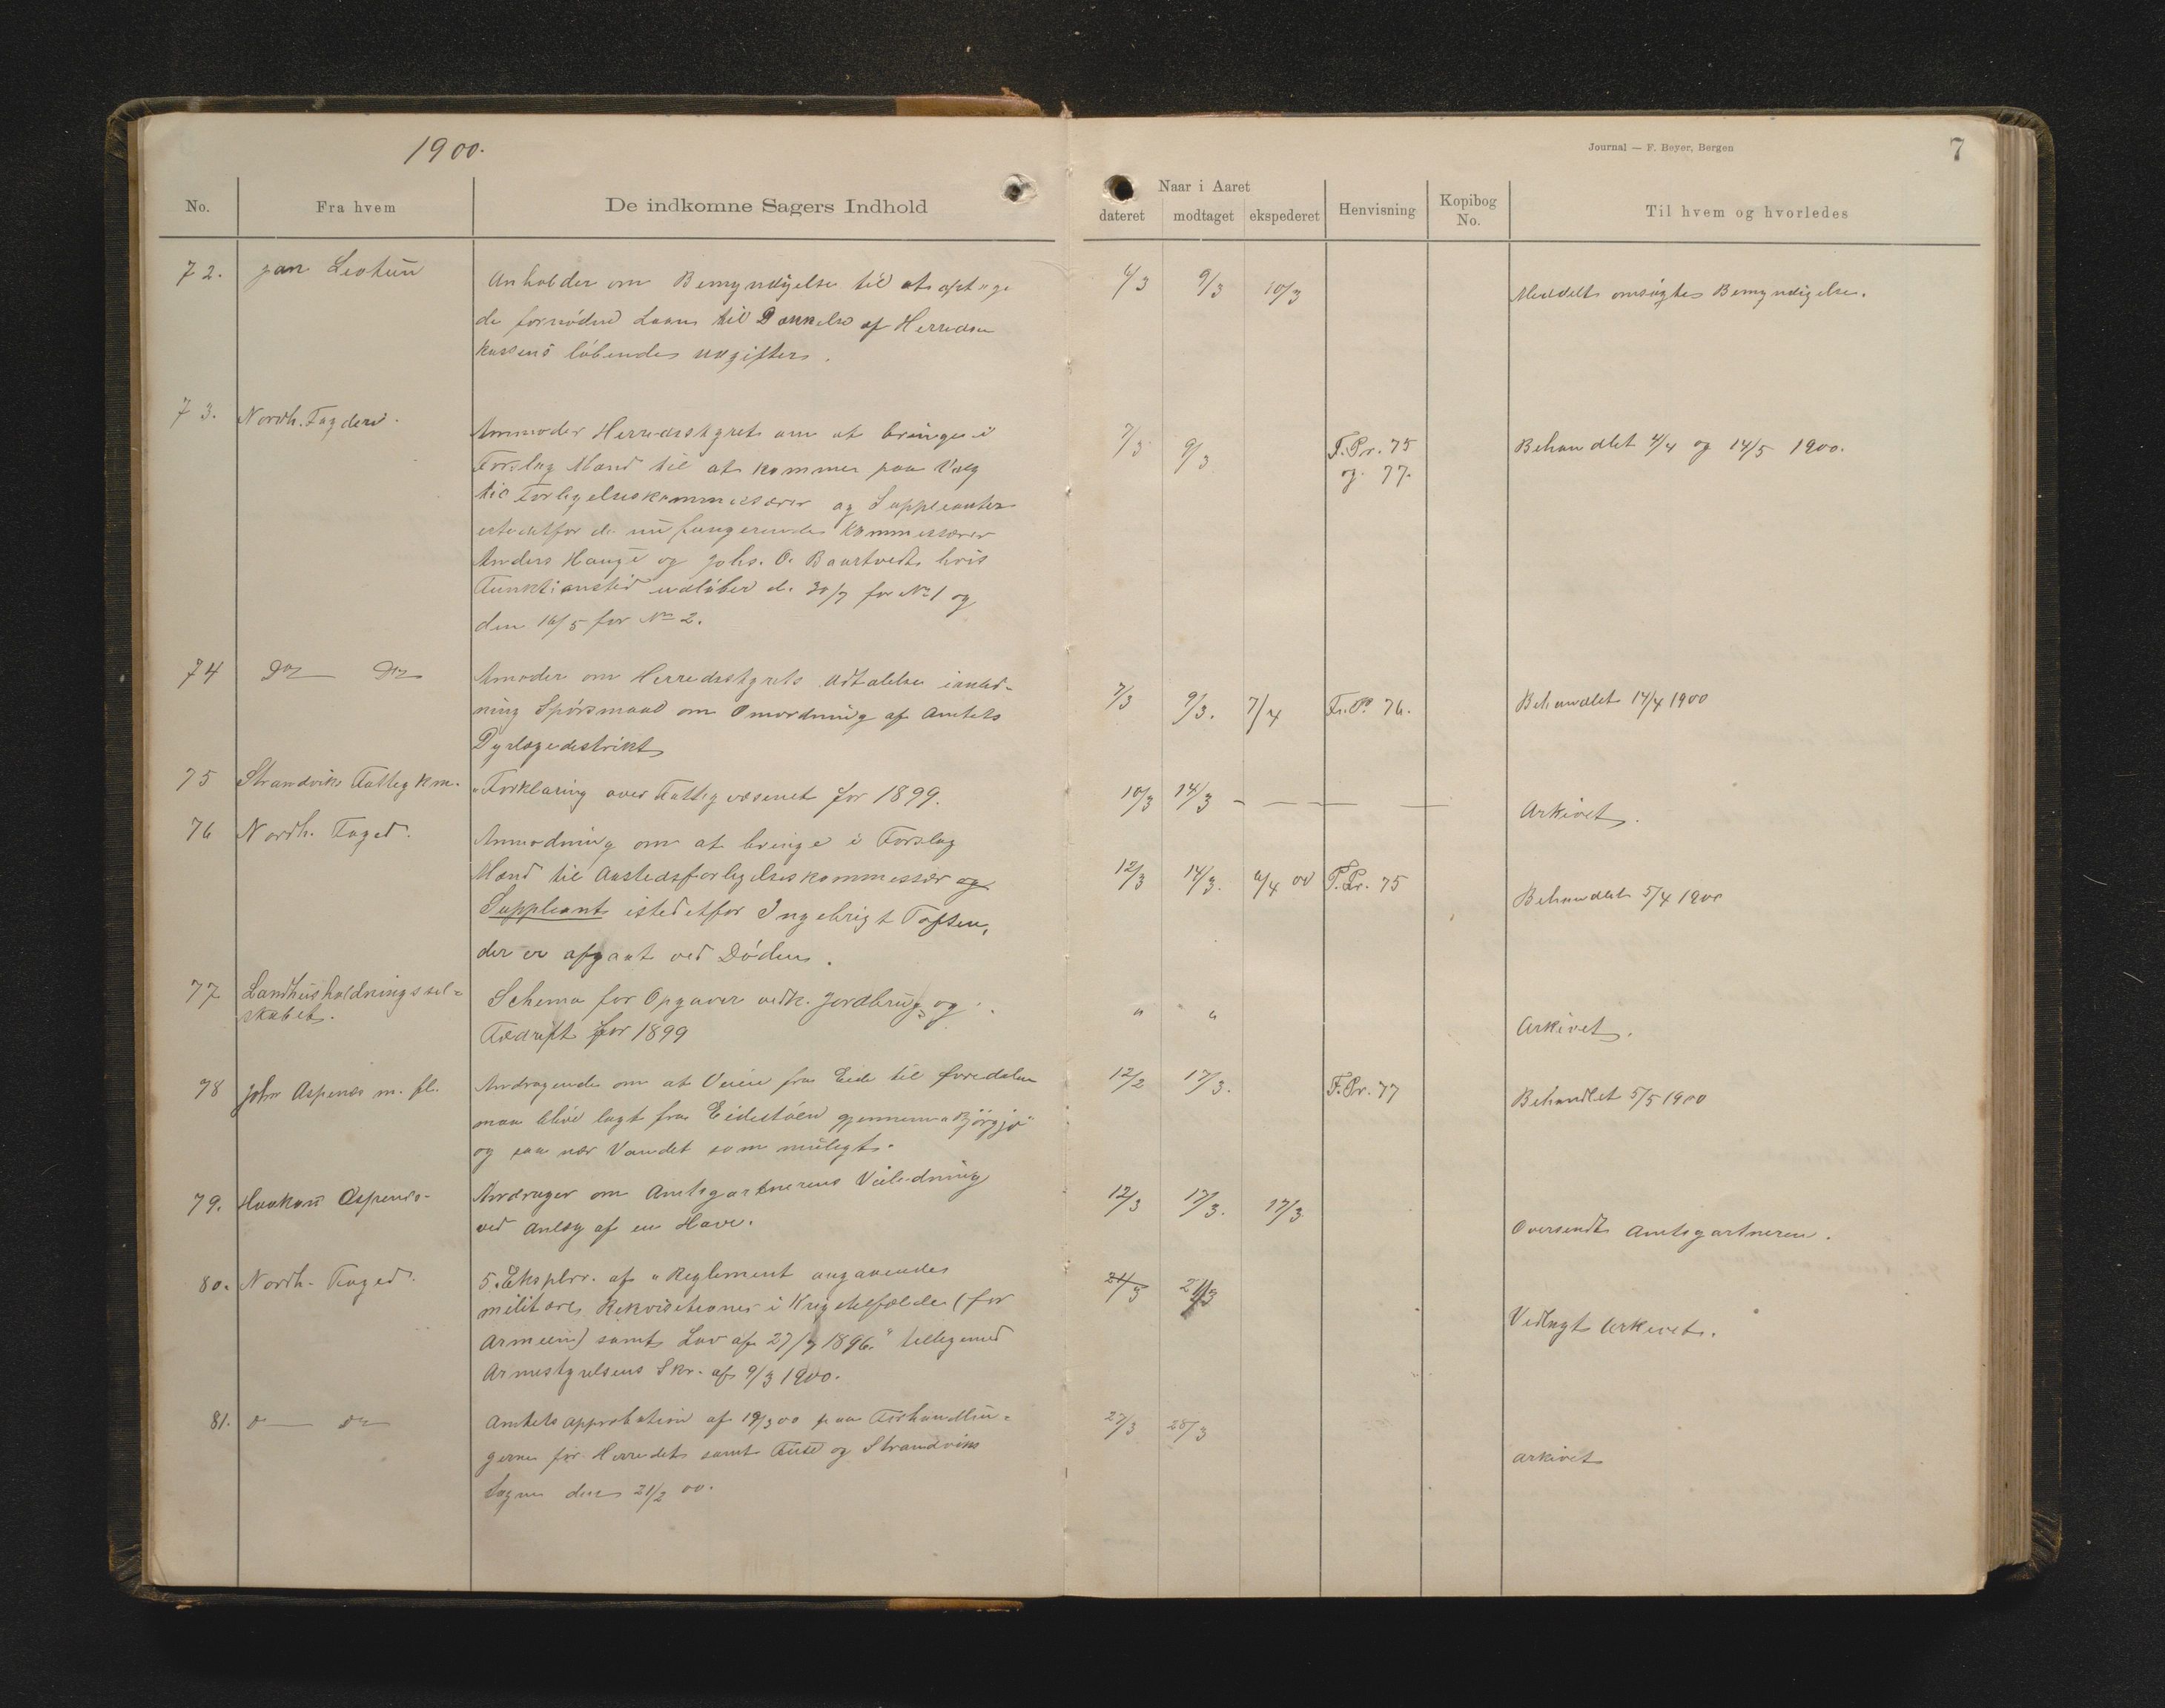 1900.
Journal — F. Beyer, Bergen
7
No.
Fra hvem
De indkomne Sagers Indhold
Naar i Aaret
dateret
modtaget
ekspederet
Henvisning
Kopibog
No.
Til hvem og hvorledes
72.
Anholder om Bemyndigelse til at optage
de fornødne Laan til Dækkelse af Herreds
kassens løbende udgifter.
6/3
9/3
10/3
Meddelt ansøgte Bemyndigelse.
73.
Nordh. Fogderi.
Anmoder Herredsstyret om at bringe i
Forslag Mænd til at komme paa Valg
til Forligelseskommissærer og Suppleanter
istedetfor de nu fungerende Kommissærer
Anders Hauge og Johs. O. Baartvedt hvis
Funktionstid udløber d. 30/7 for No 1 og
den 16/5 for No 2.
7/3
9/3
F.Pr. 75
og 77.
Behandlet 4/4 og 14/5 1900.
74
Do Do
Anmoder om Herredsstyrets Udtalelse i anled-
ning Spørsmaal om Omordning af Amtets
Dyrlægedistrikt
7/3
9/3.
7/4
F.P. 76.
Behandlet 14/4 1900
75
Strandviks Fattigkm.
Forklaring over Fattigvæsenet for 1899.
10/3
14/3
Arkivet.
76
Nordh. Foged.
Anmodning om at bringe i Forslag
Mænd til Forligelseskommissær og
Suppleant istedetfor Ingebrigt Toften,
der er afgaat ved Døden.
12/3
14/3.
F.Pr. 75
Behandlet 5/4 1900
77
Landhusholdningssel-
skabet.
Schema for Opgaver vedk. Jordbrug og
Fædrift for 1899
"
"
Arkivet.
78
John Aspenes m. fl.
Andragende om at Veien fra Eide til
maa blive lagt fra Eidestøen gjennem
og saa nær Vandet som muligt.
12/2
17/3.
F.Pr. 77
Behandlet 5/5 1900
79.
Haakon Aspenes
Andrager om Amtsgartnerens Veiledning
ved Anlæg af en Have.
12/3
17/3.
17/3
Oversendt Amtsgartneren.
80.
Nordh. Foged.
5 Eksplr. af "Reglement angaaende
militære Rekvisitioner i Krigstilfælde (for
Armeen) samt Lov af 27/7 1896." tilligemed
Armestyrelsens Skr. af 9/3 1900.
21/3
Vedlagt Arkivet.
81.
Do Do
Amtets approbation af 19/3 00 paa Forhandlin-
gerne for Herredet samt Fuse og Strandviks
Sogne den 21/2 00.
27/3
28/3
Arkivet